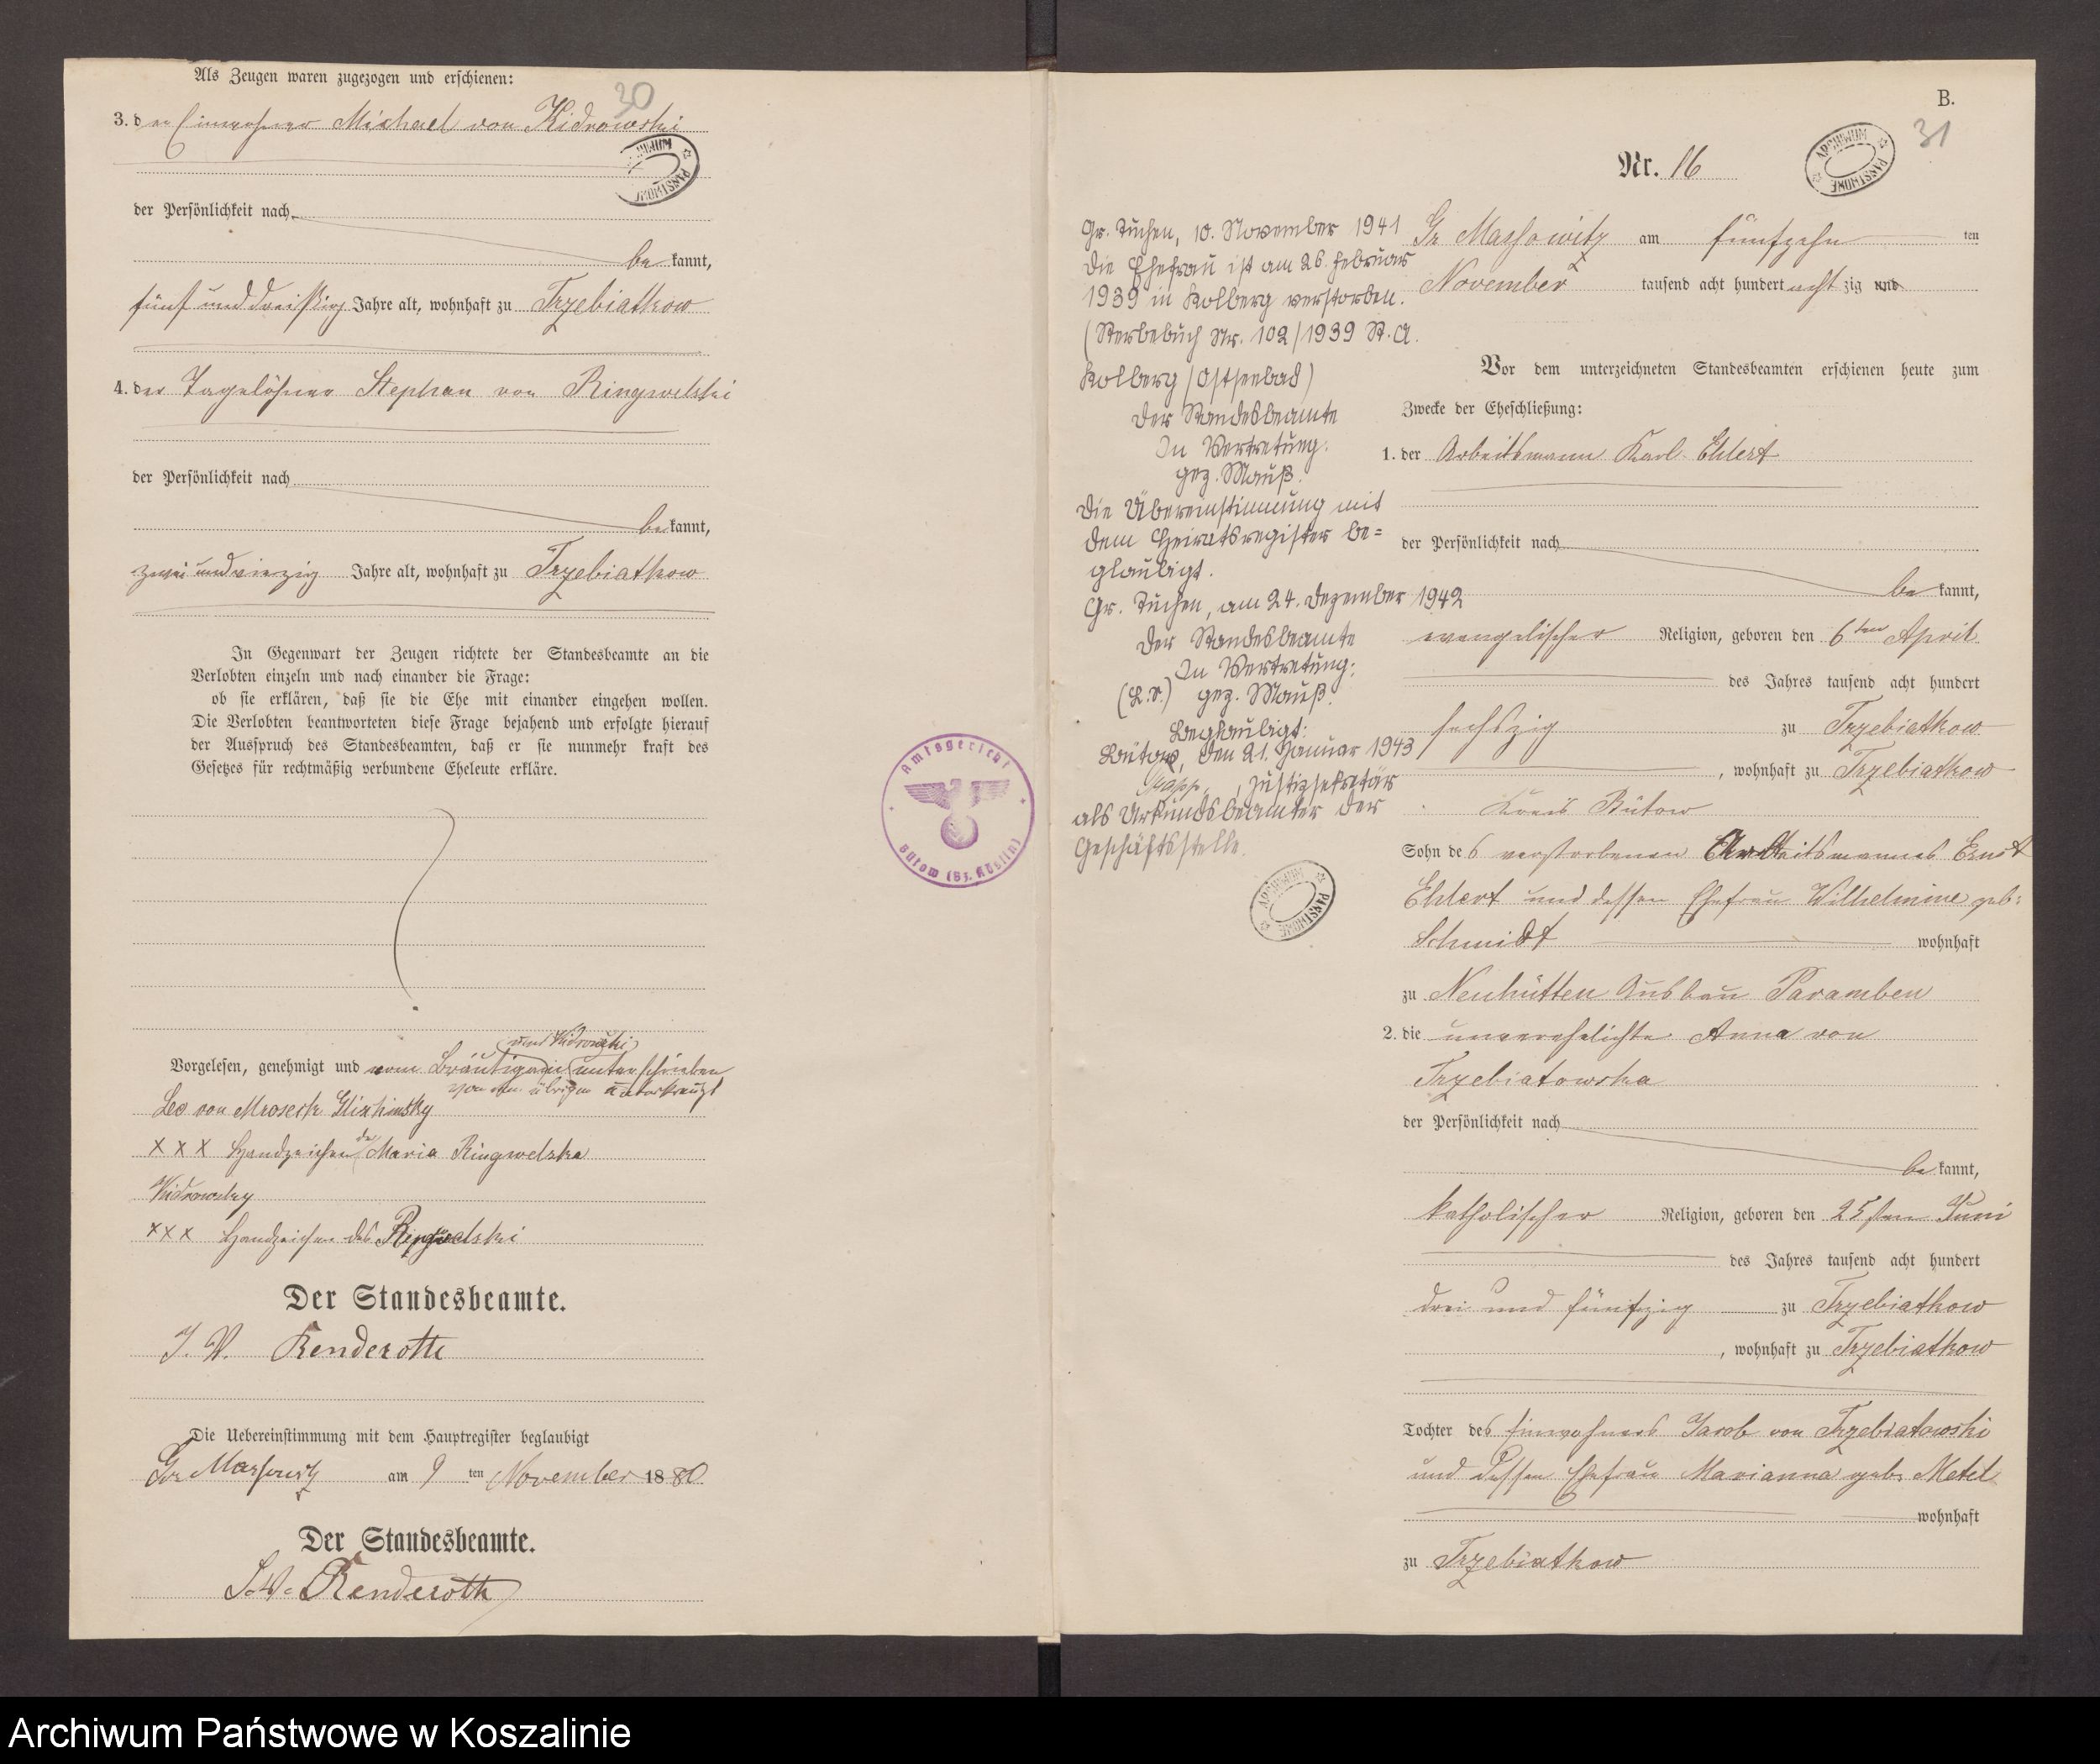 Als Zeugen waren zugezogen und erschienen:
30
3. der Einwohner Michael von Kidrowski
der Persönlichkeit nach
bekannt,
fünf und dreißig Jahre alt, wohnhaft zu Trzebiatkow
4. der Tagelöhner Stephan von Ringwelski
der Persönlichkeit nach
bekannt,
zwei und vierzig Jahre alt, wohnhaft zu Trzebiatkow
In Gegenwart der Zeugen richtete der Standesbeamte an die
Verlobten einzeln und nach einander die Frage:
ob sie erklären, daß sie die Ehe mit einander eingehen wollen.
Die Verlobten beantworteten diese Frage bejahend und erfolgte hierauf
der Ausspruch des Standesbeamten, daß er sie nunmehr kraft des
Gesetzes für rechtmäßig verbundene Eheleute erkläre.
und Kidrowski
Vorgelesen, genehmigt und vom Bräutigam unterschrieben
von den übrigen unterkreuzt
Leo von Mroseck Glischinsky
XXX Handzeichen der Maria Ringwelska
Kidrowsky
XXX Handzeichen des Ringwelski
Der Standesbeamte.
J. V. Renderoth
Die Uebereinstimmung mit dem Hauptregister beglaubigt
Gr Massowitz am 9 ten November 1880
Der Standesbeamte.
J. V. Renderoth
Amtsgericht
Bütow (Bz. Köslin)
B.
31
Nr. 16
ARCHIWUM PAŃSTWOWE
Gr. Tuchen, 10. November 1941
Die Ehefrau ist am 26. Februar
1939 in Kolberg verstorben.
(Sterbebuch Nr. 102/1939 St. A.
Kolberg (Ostseebad)
Der Standesbeamte
In Vertretung:
gez. Mauß.
Die Übereinstimmung mit
dem Heiratsregister be=
glaubigt.
Gr. Tuchen, am 24. Dezember 1942
Der Standesbeamte
In Vertretung:
(L.S.) gez. Mauß.
Beglaubigt:
Bütow, den 21. Januar 1943
, Justizsekretär
als Urkundsbeamter der
Geschäftsstelle.
ARCHIWUM PAŃSTWOWE
Gr Massowitz am fünfzehn ten
November tausend acht hundert achtzig und
Vor dem unterzeichneten Standesbeamten erschienen heute zum
Zwecke der Eheschließung:
1. der Arbeitsmann Karl Ehlert
der Persönlichkeit nach
bekannt,
evangelischer Religion, geboren den 6ten April
des Jahres tausend acht hundert
sechszig zu Trzebiatkow
, wohnhaft zu Trzebiatkow
Kreis Bütow
Sohn des verstorbenen Arbeitsmannes Ernst
Ehlert und dessen Ehefrau Wilhelmine geb:
Schmidt wohnhaft
zu Neuhütten Ausbau Paramben
2. die unverehelichte Anna von
Trzebiatowska
der Persönlichkeit nach
bekannt,
katholischer Religion, geboren den 25sten Juni
des Jahres tausend acht hundert
drei und fünfzig zu Trzebiatkow
, wohnhaft zu Trzebiatkow
Tochter des Einwohners Jacob von Trzebiatowski
und dessen Ehefrau Marianna geb. Metel
wohnhaft
zu Trzebiatkow
Archiwum Państwowe w Koszalinie